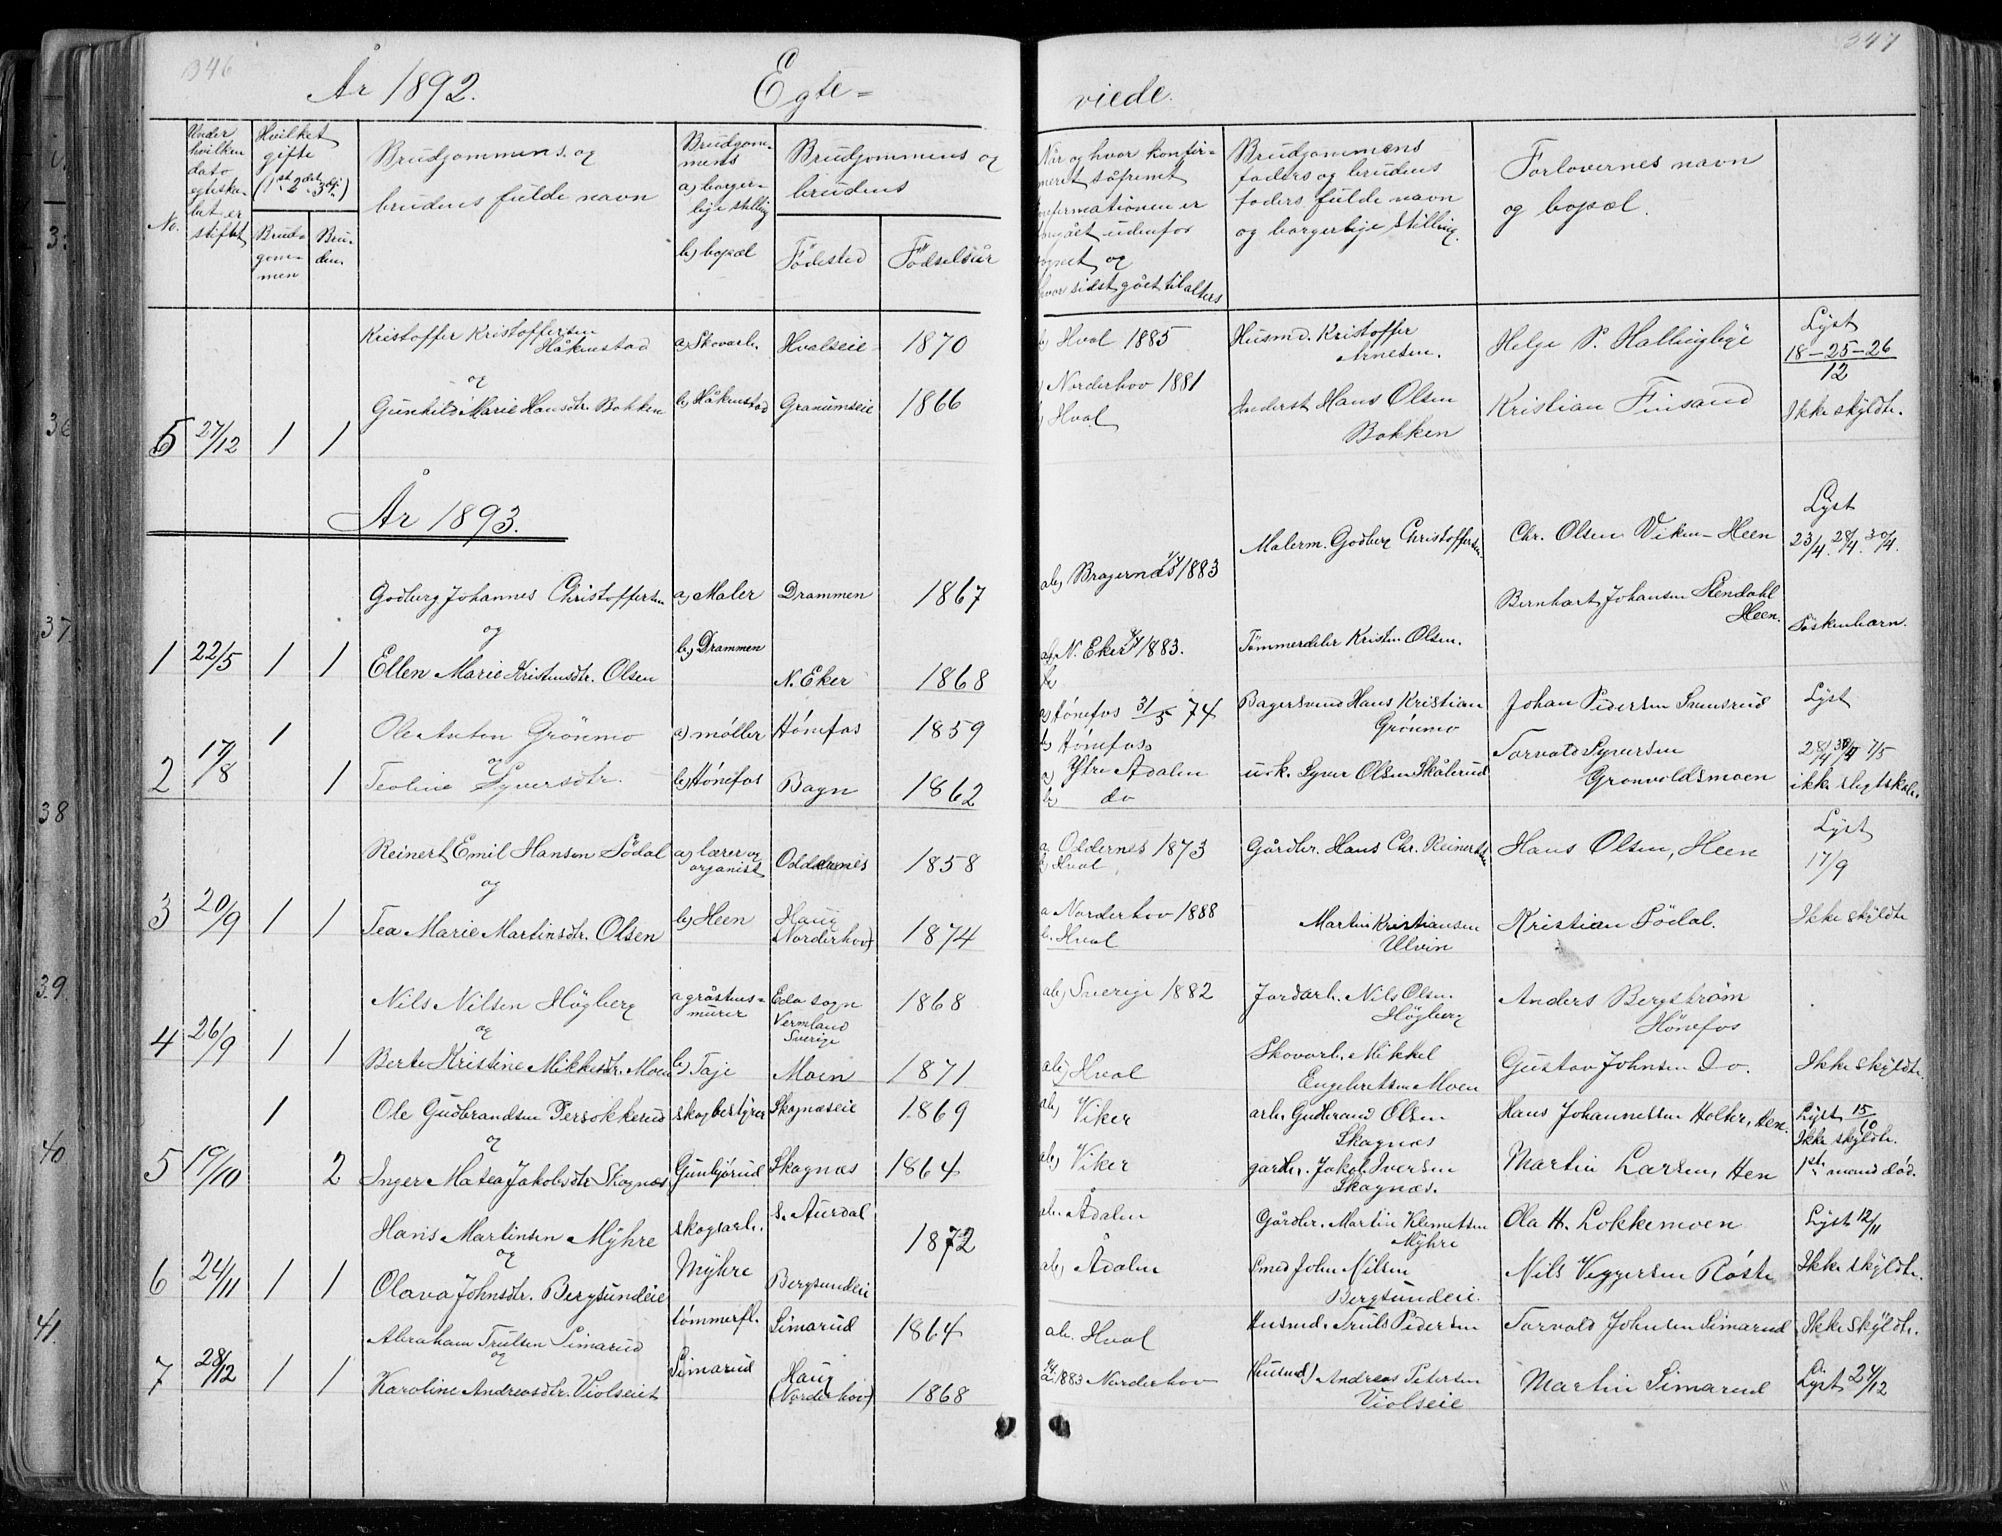 346
År 1892.
Egte-
No.
Under
hvilken
dato
egteska-
bet er
stiftet
Hvilket
gifte
(1st 2det 3dje)
Brud-
gom-
men
Bru-
den
Brudgommens og
brudens fulde navn
Brudgom-
mens
a) borger-
lige stilling
b) bopæl
Brudgommens og
brudens
Födested
Födselsår
Kristoffer Kristoffersen
Håkenstad
a) Skovarb.
Hvalseie
1870
og
Gunhild Marie Hansdtr. Bakken
b) Håkenstad
Granumseie
1866
5 27/12 1 1
År 1893.
Godberg Johannes Christoffersen
a) Maler
Drammen
1867
og
b) Drammen
1 22/5 1 1
Ellen Marie Kristensdtr. Olsen
N. Eker
1868
Ole Anton Grönmo
1
a) møller
Hönefos
1859
og
2 17/8 1
Teoline Syversdtr.
b) Hönefos
Bagn
1862
Reinert Emil Hansen Södal
a) lærer og
organist
Oddernes
1858
og
3 20/9 1 1
Tea Marie Martinsdtr. Olsen
b) Heen
Haug
(Norderhov)
1874
Nils Nilsen Högberg
a gråstens-
murer
Eda sogn
Vermland
Sverige
1868
og
4 26/9 1 1
Berte Kristine Mikkelsdtr. Moen
b) Taje
Moen
1871
1
Ole Gudbrandsen Persokkerud
skogbestyrer
Skagnæseie
1869
og
5 19/10 2
Inger Matea Jakobsdtr Skagnæs
Gunbjørud
Skagnæs
1864
Hans Martinsen Mÿhre
skogsarb.
S. Aurdal
1872
og
6 24/11 1 1
Olava Johnsdtr. Bergsundeie
Mÿhre
Bergsundeie
Abraham Trulsen Simarud
tömmerfl.
Simarud
1864
og
7 28/12 1 1
Karoline Andreasdtr. Violseiet
Simarud
Haug
(Norderhov)
1868
347
viede.
Når og hvor konfir-
meret såfremt
konfirmationen er
foregået udenfor
sognet, og
hvor sidst gået til alters
Brudgommens
faders og brudens
faders fulde navn
og borgerlige stilling.
Forlovernes navn
og bopæl.
b) Hval 1885
Husmd. Kristoffer
Arnesen.
Helge P. Hallingbye
Lÿst
18-25-26
12
a) Norderhov 1881
b) Hval
Inderst Hans Olsen
Bakken
Kristian Finsand
Ikke skÿldte.
ab) Bragernæs 1883
Malerm. Godberg Christoffersen
Chr. Olsen Viken - Heen
Lÿst
23/4. 28/4. 30/4.
Bernhart Johansen Stendahl
Heen.
Söskenbarn.
a) N. Eker 1883.
b)
Tömmerdeler Kristen Olsen.
a) Hönefos 31/5 74
b) Hönefoss
Bagersvend Hans Kristian
Grönmo
Johan Pedersen Svensrud
Lÿst
a) Ytre Ådalen
b) do
usk. Syver Olsen Skålerud
Torvald Syversen
Gronvoldsmoen
28/4 30/4 7/5
ikke slegtskab.
a Oddernes 1873
b) Hval
Gårdbr. Hans Chr. Reinertsen
Hans Olsen, Heen
Lÿst
17/9
a Norderhov 1888
b. Hval
Martin Kristiansen
Ulvin
Kristian Södal.
Ikke skÿldte
ab) Sverige 1882
Jordarb. Nils Olsen
Högberg
Anders Bergström
Hönefos
ab) Hval
Skovarb. Mikkel
Engebretsen Moen
Gustav Johnsen Do.
Ikke skÿldte.
ab) Viker
arb. Gudbrand Olsen
Skagnæs
Hans Johannessen Holter, Hen.
Lÿst 15/10
Ikke skÿldte.
ab) Viker
gardbr. Jakob Iversen
Skagnæs.
Martin Larsen, Hen
1ste mand död.
ab. Ådalen
Gårdbr. Martin Klemetsen
Mÿhre
Ola H. Lokkemoen
Lÿst 12/11
ab) Ådalen
Smed John Nilsen
Bergsundeie.
Nils Viggersen Röste
Ikke skÿldte.
ab. Hval
Husmd. Truls Pedersen
Torvald Johnsen Simarud
Ikke skÿldte.
1883 Norderhov
(husmd) Andreas Petersen
Violseie
Martin Simarud
Lÿst 24/12
36
37
38
39
40
41.